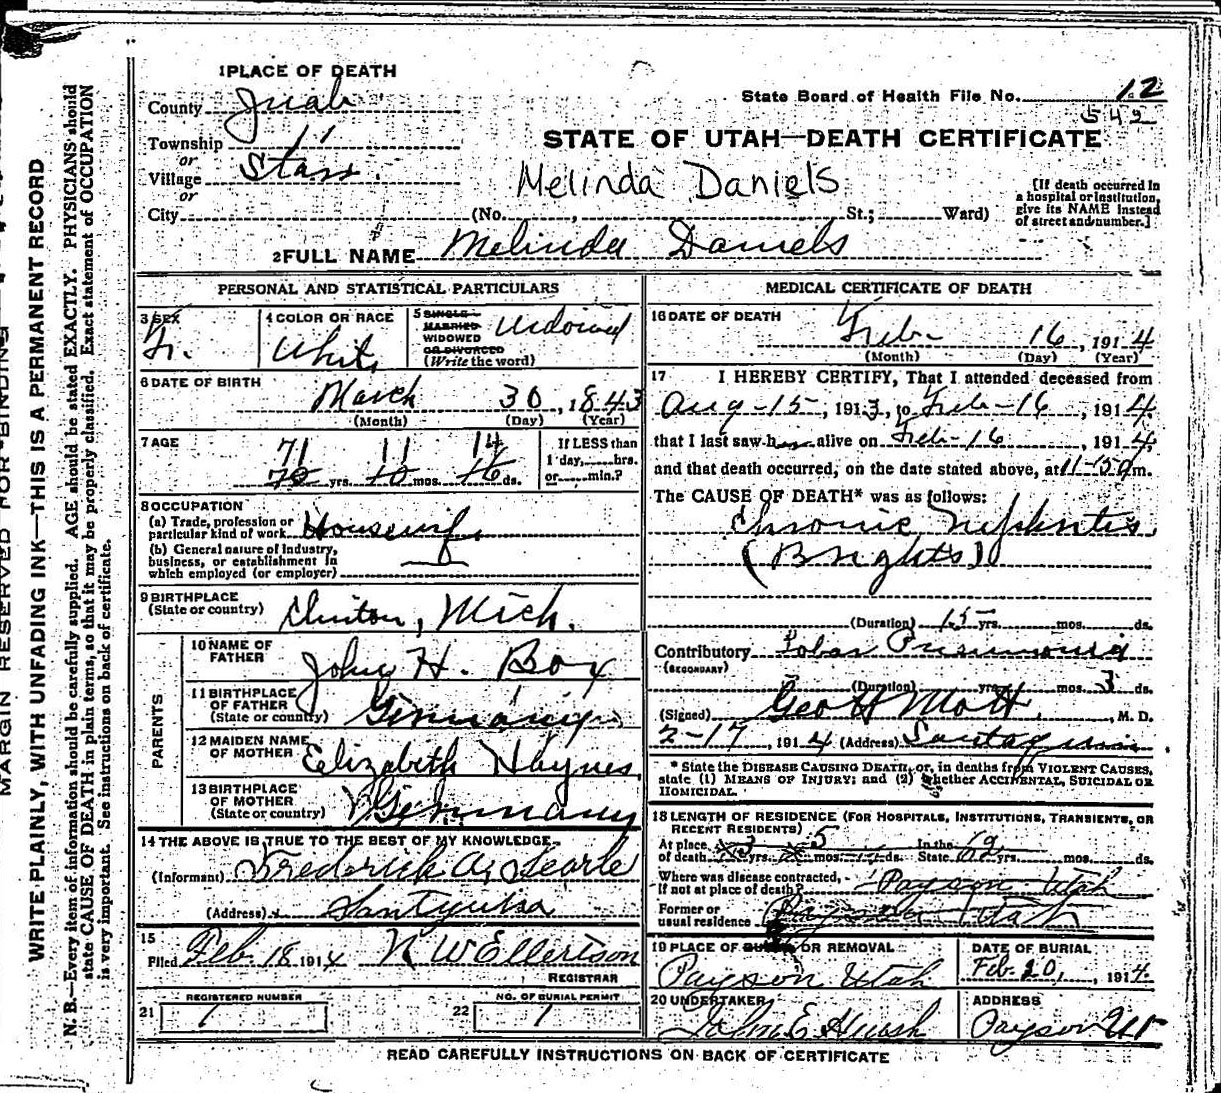 1 PLACE OF DEATH
County Juab
State Board of Health File No. 12
542
Township 11
or
Village Starr.
or
STATE OF UTAH—DEATH CERTIFICATE
Melinda Daniels
City (No. , St.; Ward)
[If death occurred in a hospital or institution, give its NAME instead of street and number.]
2 FULL NAME Melinda Daniels
PERSONAL AND STATISTICAL PARTICULARS
3 SEX F.
4 COLOR OR RACE White
5 SINGLE MARRIED WIDOWED OR DIVORCED (Write the word) Widowed
6 DATE OF BIRTH March 30, 1843
(Month) (Day) (Year)
7 AGE 71 11 14
72 yrs. 10 mos. 16 ds.
If LESS than 1 day, hrs. or min.?
8 OCCUPATION
(a) Trade, profession or particular kind of work Housewife
(b) General nature of industry, business, or establishment in which employed (or employer)
9 BIRTHPLACE (State or country) Clinton, Mich.
PARENTS
10 NAME OF FATHER John H. Box
11 BIRTHPLACE OF FATHER (State or country) Germany
12 MAIDEN NAME OF MOTHER Elizabeth Haynes
13 BIRTHPLACE OF MOTHER (State or country) Germany
14 THE ABOVE IS TRUE TO THE BEST OF MY KNOWLEDGE
(Informant) Frederick A. Searle
(Address) Santquin
15
Filed Feb. 18 1914 N W Ellertson
REGISTRAR
21 REGISTERED NUMBER 1
22 NO. OF BURIAL PERMIT 1
MEDICAL CERTIFICATE OF DEATH
16 DATE OF DEATH Feb- 16, 1914
(Month) (Day) (Year)
17 I HEREBY CERTIFY, That I attended deceased from
Aug-15, 1913, to Feb-16, 1914,
that I last saw h alive on Feb-16, 1914,
and that death occurred, on the date stated above, at 11-15 m.
The CAUSE OF DEATH* was as follows:
Chronic Nephritis
(Brights)
(Duration) 15 yrs. mos. ds.
Contributory (SECONDARY) Lobar Pneumonia
(Duration) yrs. mos. 3 ds.
(Signed) Geo H Mott, M. D.
2-17, 1914 (Address) Santaquin
* State the DISEASE CAUSING DEATH, or, in deaths from VIOLENT CAUSES, state (1) MEANS OF INJURY; and (2) whether ACCIDENTAL, SUICIDAL OR HOMICIDAL.
18 LENGTH OF RESIDENCE (FOR HOSPITALS, INSTITUTIONS, TRANSIENTS, OR RECENT RESIDENTS)
At place of death yrs. 5 mos. ds. In the State 62 yrs. mos. ds.
Where was disease contracted, if not at place of death? Payson Utah
Former or usual residence Payson Utah
19 PLACE OF BURIAL OR REMOVAL
Payson Utah
DATE OF BURIAL
Feb. 20, 1914
20 UNDERTAKER
John E Huish
ADDRESS
Payson Ut
READ CAREFULLY INSTRUCTIONS ON BACK OF CERTIFICATE
MARGIN RESERVED FOR BINDING
WRITE PLAINLY, WITH UNFADING INK—THIS IS A PERMANENT RECORD
N. B.—Every item of information should be carefully supplied. AGE should be stated EXACTLY. PHYSICIANS should
state CAUSE OF DEATH in plain terms, so that it may be properly classified. Exact statement of OCCUPATION
is very important. See instructions on back of certificate.